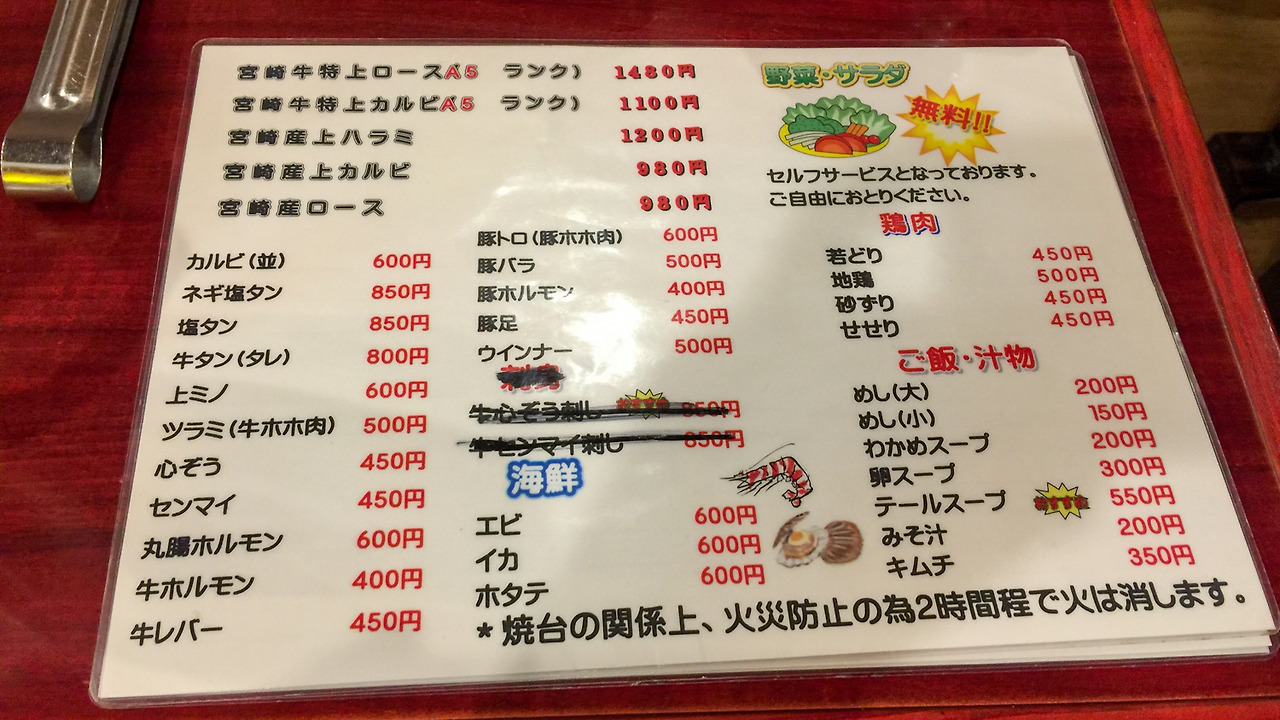 宮崎牛特上ロースA5 ランク) 1480円
宮崎牛特上カルビA5 ランク) 1100円
宮崎産上ハラミ 1200円
宮崎産上カルビ 980円
宮崎産ロース 980円
カルビ(並) 600円
ネギ塩タン 850円
塩タン 850円
牛タン(タレ) 800円
上ミノ 600円
ツラミ(牛ホホ肉) 500円
心ぞう 450円
センマイ 450円
丸腸ホルモン 600円
牛ホルモン 400円
牛レバー 450円
豚トロ(豚ホホ肉) 600円
豚バラ 500円
豚ホルモン 400円
豚足 450円
ウインナー 500円
牛心ぞう刺し おすすめ 850円
牛センマイ刺し 850円
海鮮
エビ 600円
イカ 600円
ホタテ 600円
野菜・サラダ
無料!!
セルフサービスとなっております。
ご自由におとりください。
鶏肉
若どり 450円
地鶏 500円
砂ずり 450円
せせり 450円
ご飯・汁物
めし(大) 200円
めし(小) 150円
わかめスープ 200円
卵スープ 300円
テールスープ おすすめ 550円
みそ汁 200円
キムチ 350円
*焼台の関係上、火災防止の為2時間程で火は消します。